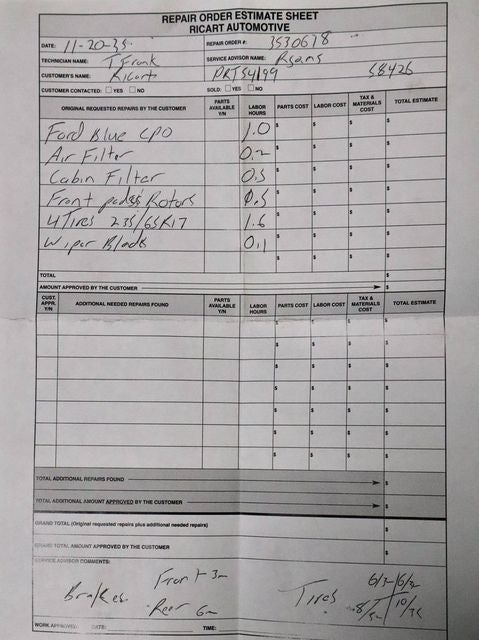 REPAIR ORDER ESTIMATE SHEET
RICART AUTOMOTIVE
DATE: 11-20-25 REPAIR ORDER #: 3530678
TECHNICIAN NAME: T Frank SERVICE ADVISOR NAME: Rsams
CUSTOMER'S NAME: Ricart PRT54199 58426
CUSTOMER CONTACTED: YES NO SOLD: YES NO
ORIGINAL REQUESTED REPAIRS BY THE CUSTOMER PARTS AVAILABLE Y/N LABOR HOURS PARTS COST LABOR COST TAX & MATERIALS COST TOTAL ESTIMATE
Ford Blue CPO 1.0 $ $ $ $
Air Filter 0.2 $ $ $ $
Cabin Filter 0.3 $ $ $ $
Front pads Rotors $ $ $ $
4 Tires 235/65R17 1.6 $ $ $ $
Wiper Blade 0.1 $ $ $ $
$ $ $ $
TOTAL $
AMOUNT APPROVED BY THE CUSTOMER $
CUST. APPR. Y/N ADDITIONAL NEEDED REPAIRS FOUND PARTS AVAILABLE Y/N LABOR HOURS PARTS COST LABOR COST TAX & MATERIALS COST TOTAL ESTIMATE
$ $ $ $
$ $ $ $
$ $ $ $
$ $ $ $
$ $ $ $
$ $ $ $
$ $ $ $
TOTAL ADDITIONAL REPAIRS FOUND $
TOTAL ADDITIONAL AMOUNT APPROVED BY THE CUSTOMER $
GRAND TOTAL (Original requested repairs plus additional needed repairs) $
GRAND TOTAL AMOUNT APPROVED BY THE CUSTOMER $
SERVICE ADVISOR COMMENTS:
Brakes Front 3m Tires 6/32
Rear 6m
WORK APPROVED: DATE: TIME: